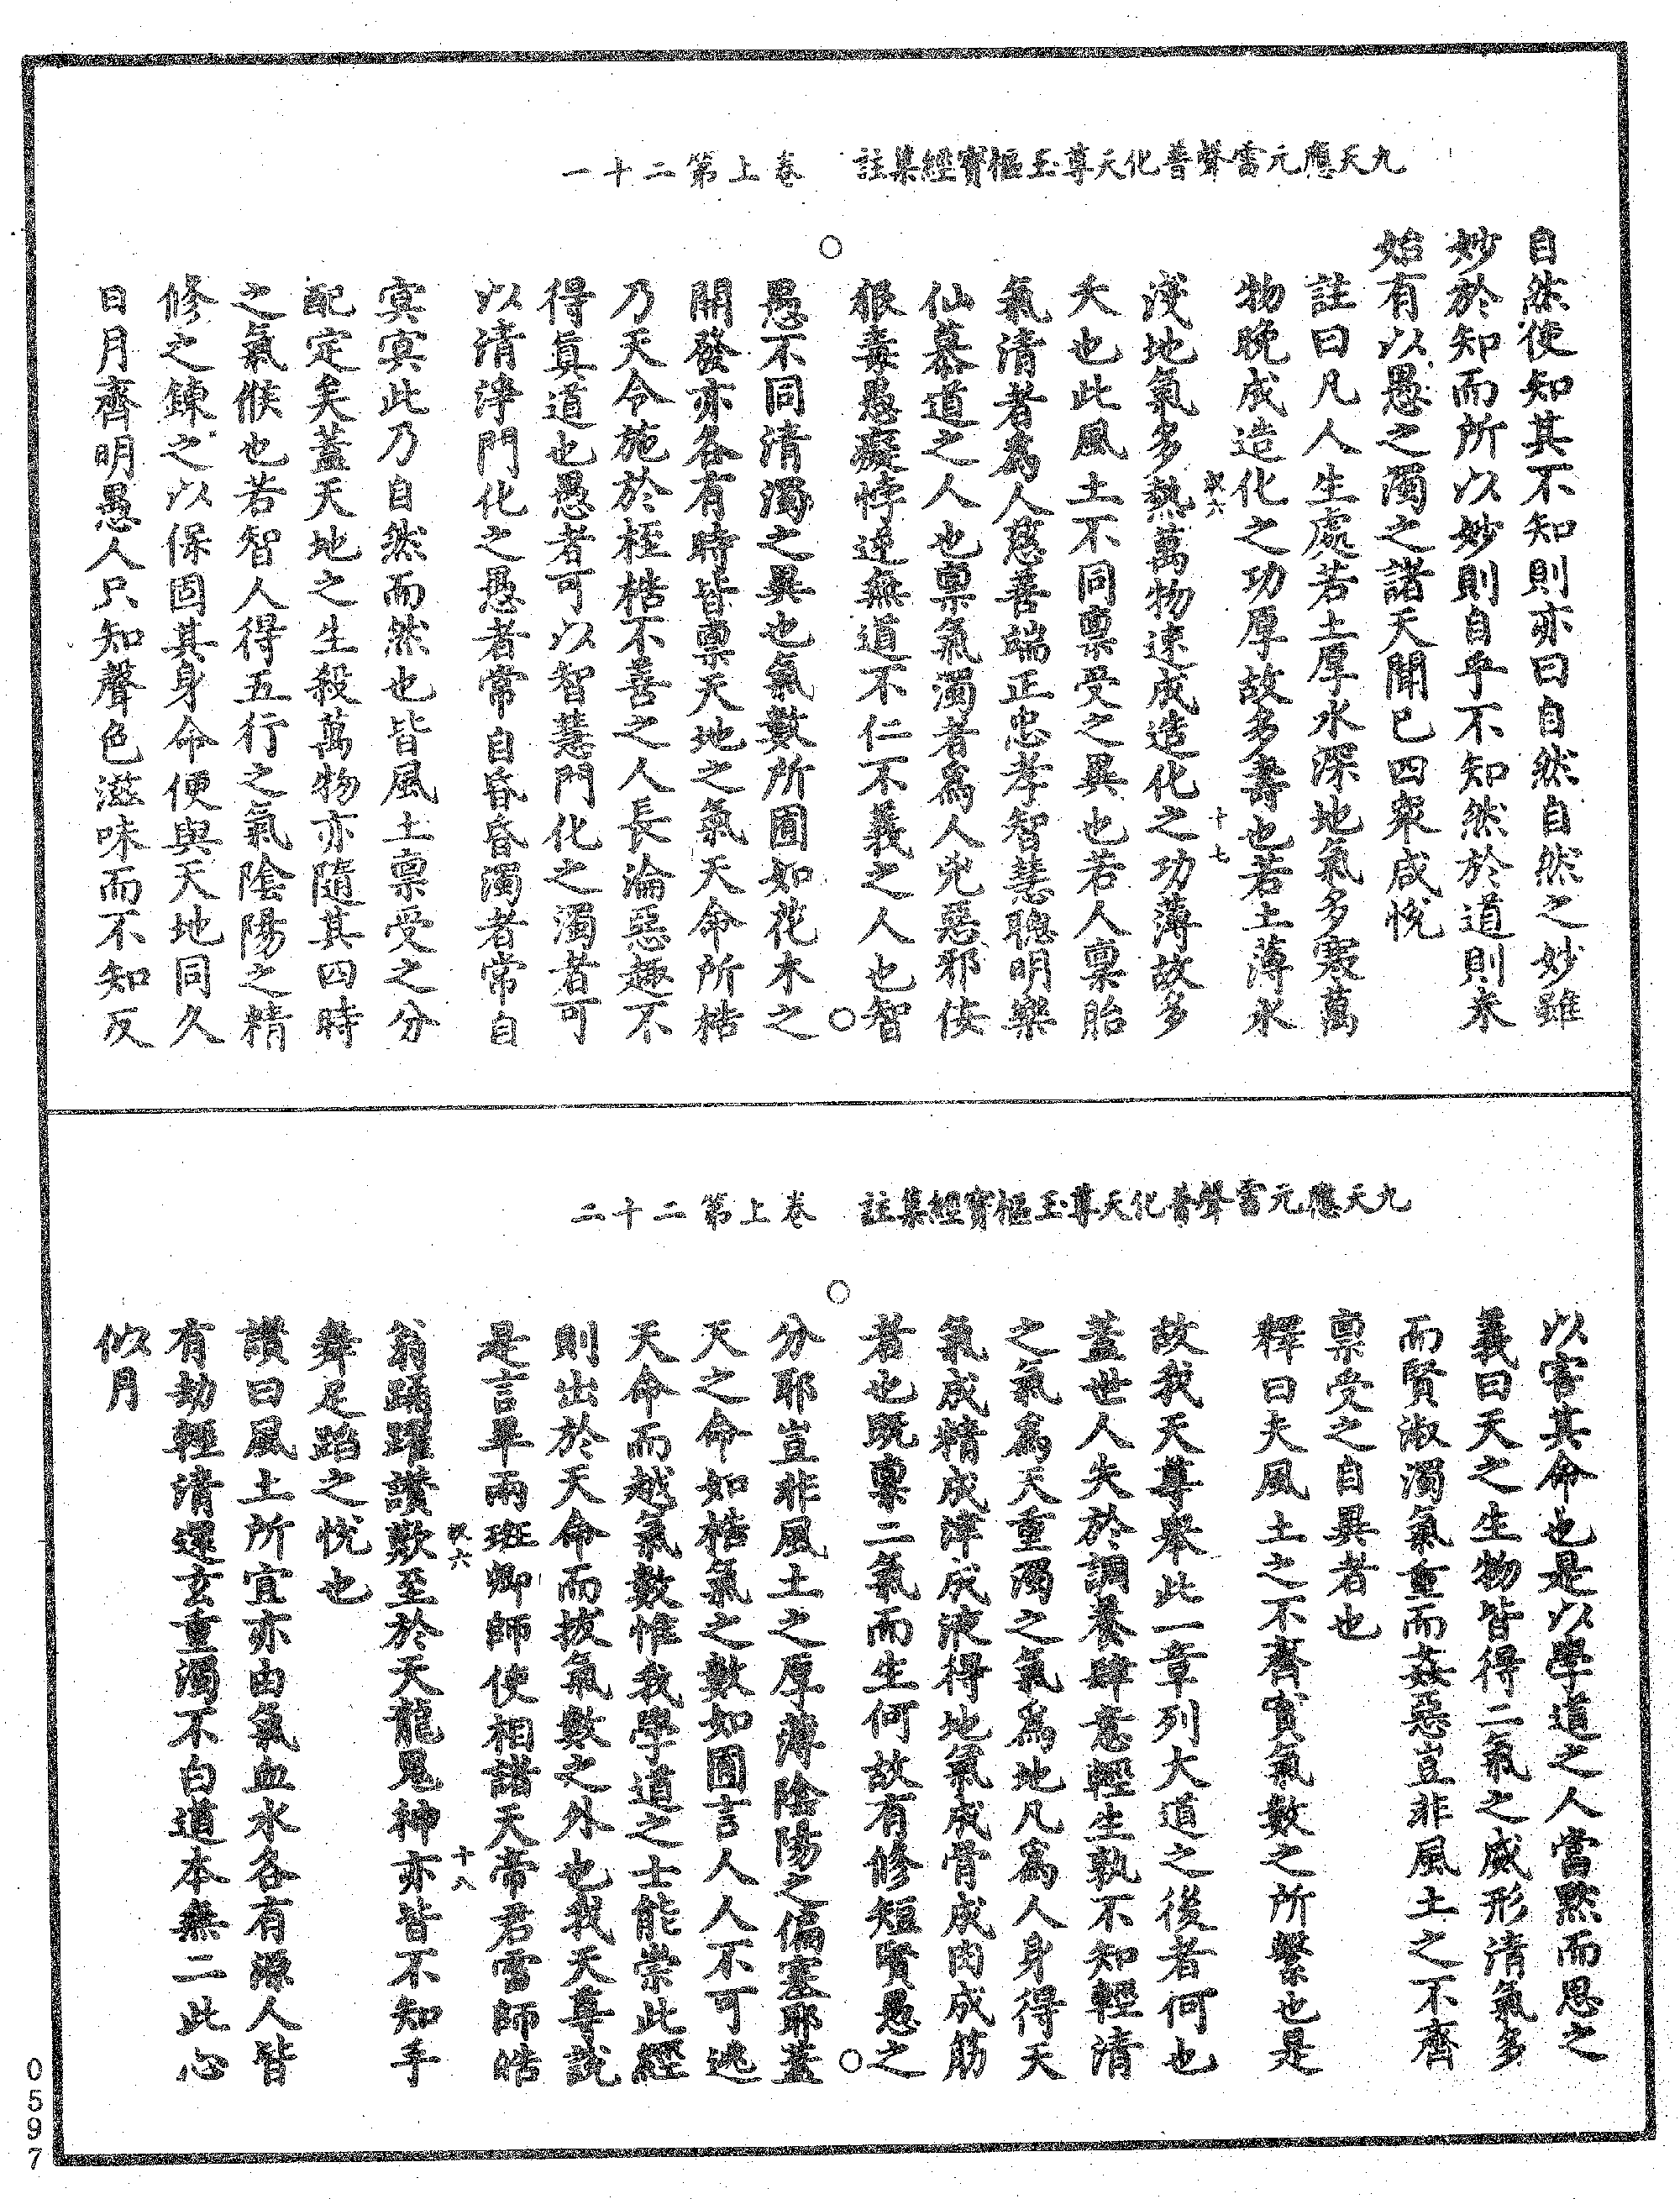 九天應元雷聲普化天尊玉樞寶經集註　卷上第二十一
自然使知其不知則亦曰自然自然之妙雖
妙於知而所以妙則自乎不知然於道則未
始有以愚之濁之諸天聞已四衆咸悅
註曰凡人生處若土厚水深地氣多寒萬
物晚成造化之功厚故多壽也若土薄水
淺地氣多熱萬物速成造化之功薄故多
夭也此風土不同禀受之異也若人禀胎
氣清者為人慈善端正忠孝智慧聰明樂
仙慕道之人也禀氣濁者為人兇惡邪佞
狠毒愚癡悖逆無道不仁不義之人也智
愚不同清濁之異也氣數所囿如花木之
開發亦各有時皆禀天地之氣天命所梏
乃天令施於桎梏不善之人長淪惡趣不
得眞道也愚者可以智慧門化之濁者可
以清淨門化之愚者常自昏昏濁者常自
㝠㝠此乃自然而然也皆風土禀受之分
配定矣蓋天地之生殺萬物亦隨其四時
之氣候也若智人得五行之氣陰陽之精
修之鍊之以保固其身命便與天地同久
日月齊明愚人只知聲色滋味而不知反
九天應元雷聲普化天尊玉樞寶經集註　卷上第二十二
以害其命也是以學道之人當默而思之
義曰天之生物皆得二氣之咸形清氣多
而賢淑濁氣重而姦惡豈非風土之不齊
禀受之自異者也
釋曰夫風土之不齊實氣數之所繫也是
故我天尊舉此一章列大道之後者何也
蓋世人失於調養肆意輕生孰不知輕清
之氣為天重濁之氣為地凡為人身得天
氣成精成津成液得地氣成骨成肉成筋
者也既禀二氣而生何故有修短賢愚之
分耶豈非風土之厚薄陰陽之偏塞耶蓋
天之命如梏氣之數如囿言人人不可逃
天命而越氣數惟我學道之士能崇此經
則出於天命而拔氣數之外也我天尊說
是言畢兩班卿師使相諸天帝君雷師皓
翁踊躍讚歎至於天龍鬼神亦皆不知手
舞足蹈之悅也
讚曰風土所宜亦由氣血水各有源人皆
有劫輕清還玄重濁不白道本無二此心
似月
十七
十八
0597